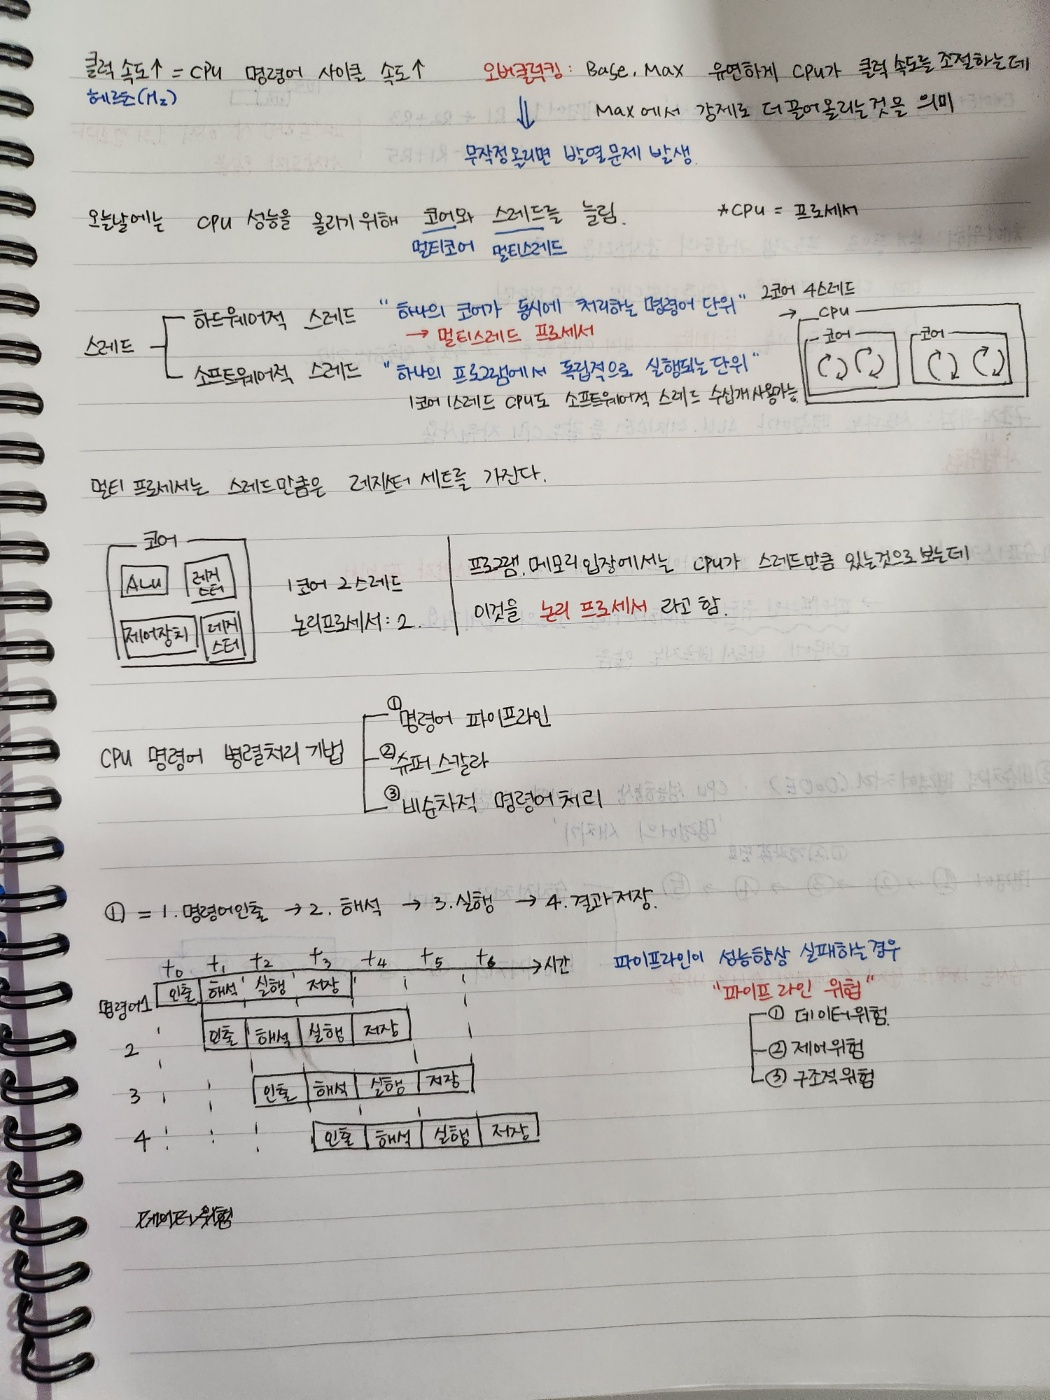 클럭 속도↑ = CPU 명령어 사이클 속도↑
헤르츠(Hz)
오버클럭킹: Base, Max 유연하게 CPU가 클럭 속도를 조절하는데
Max에서 강제로 더 끌어올리는 것을 의미
⇓
무작정 올리면 발열문제 발생.
오늘날에는 CPU 성능을 올리기 위해 코어와 스레드를 늘림.
멀티코어 멀티스레드
*CPU = 프로세서
스레드
하드웨어적 스레드 "하나의 코어가 동시에 처리하는 명령어 단위"
→ 멀티스레드 프로세서
소프트웨어적 스레드 "하나의 프로그램에서 독립적으로 실행되는 단위"
1코어 1스레드 CPU도 소프트웨어적 스레드 수십개 사용가능
2코어 4스레드
→ CPU
코어 코어
멀티 프로세서는 스레드만큼은 레지스터 세트를 가진다.
코어
ALU 레지스터
제어장치 레지스터
1코어 2스레드
논리프로세서: 2.
프로그램, 메모리 입장에서는 CPU가 스레드만큼 있는것으로 보는데
이것을 논리 프로세서 라고 함.
CPU 명령어 병렬처리 기법
① 명령어 파이프라인
② 슈퍼 스칼라
③ 비순차적 명령어 처리
① = 1. 명령어 인출 → 2. 해석 → 3. 실행 → 4. 결과 저장.
t0 t1 t2 t3 t4 t5 t6 → 시간
명령어1 인출 해석 실행 저장
2 인출 해석 실행 저장
3 인출 해석 실행 저장
4 인출 해석 실행 저장
파이프라인이 성능향상 실패하는 경우
"파이프 라인 위험"
① 데이터 위험.
② 제어 위험
③ 구조적 위험
데이터 위험